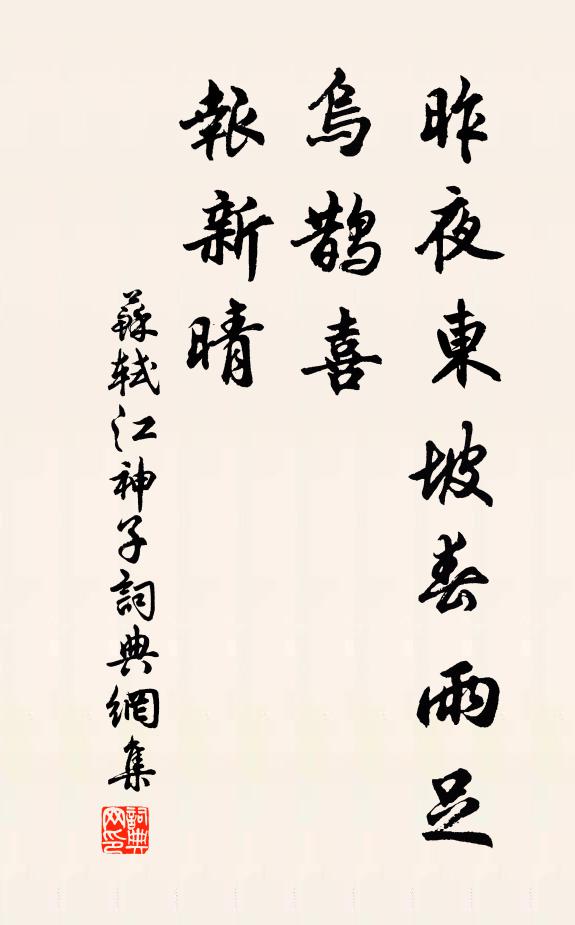 昨夜東坡春雨足
烏鵲喜
報新晴
蘇軾江神子詞典網集
詞典
网印